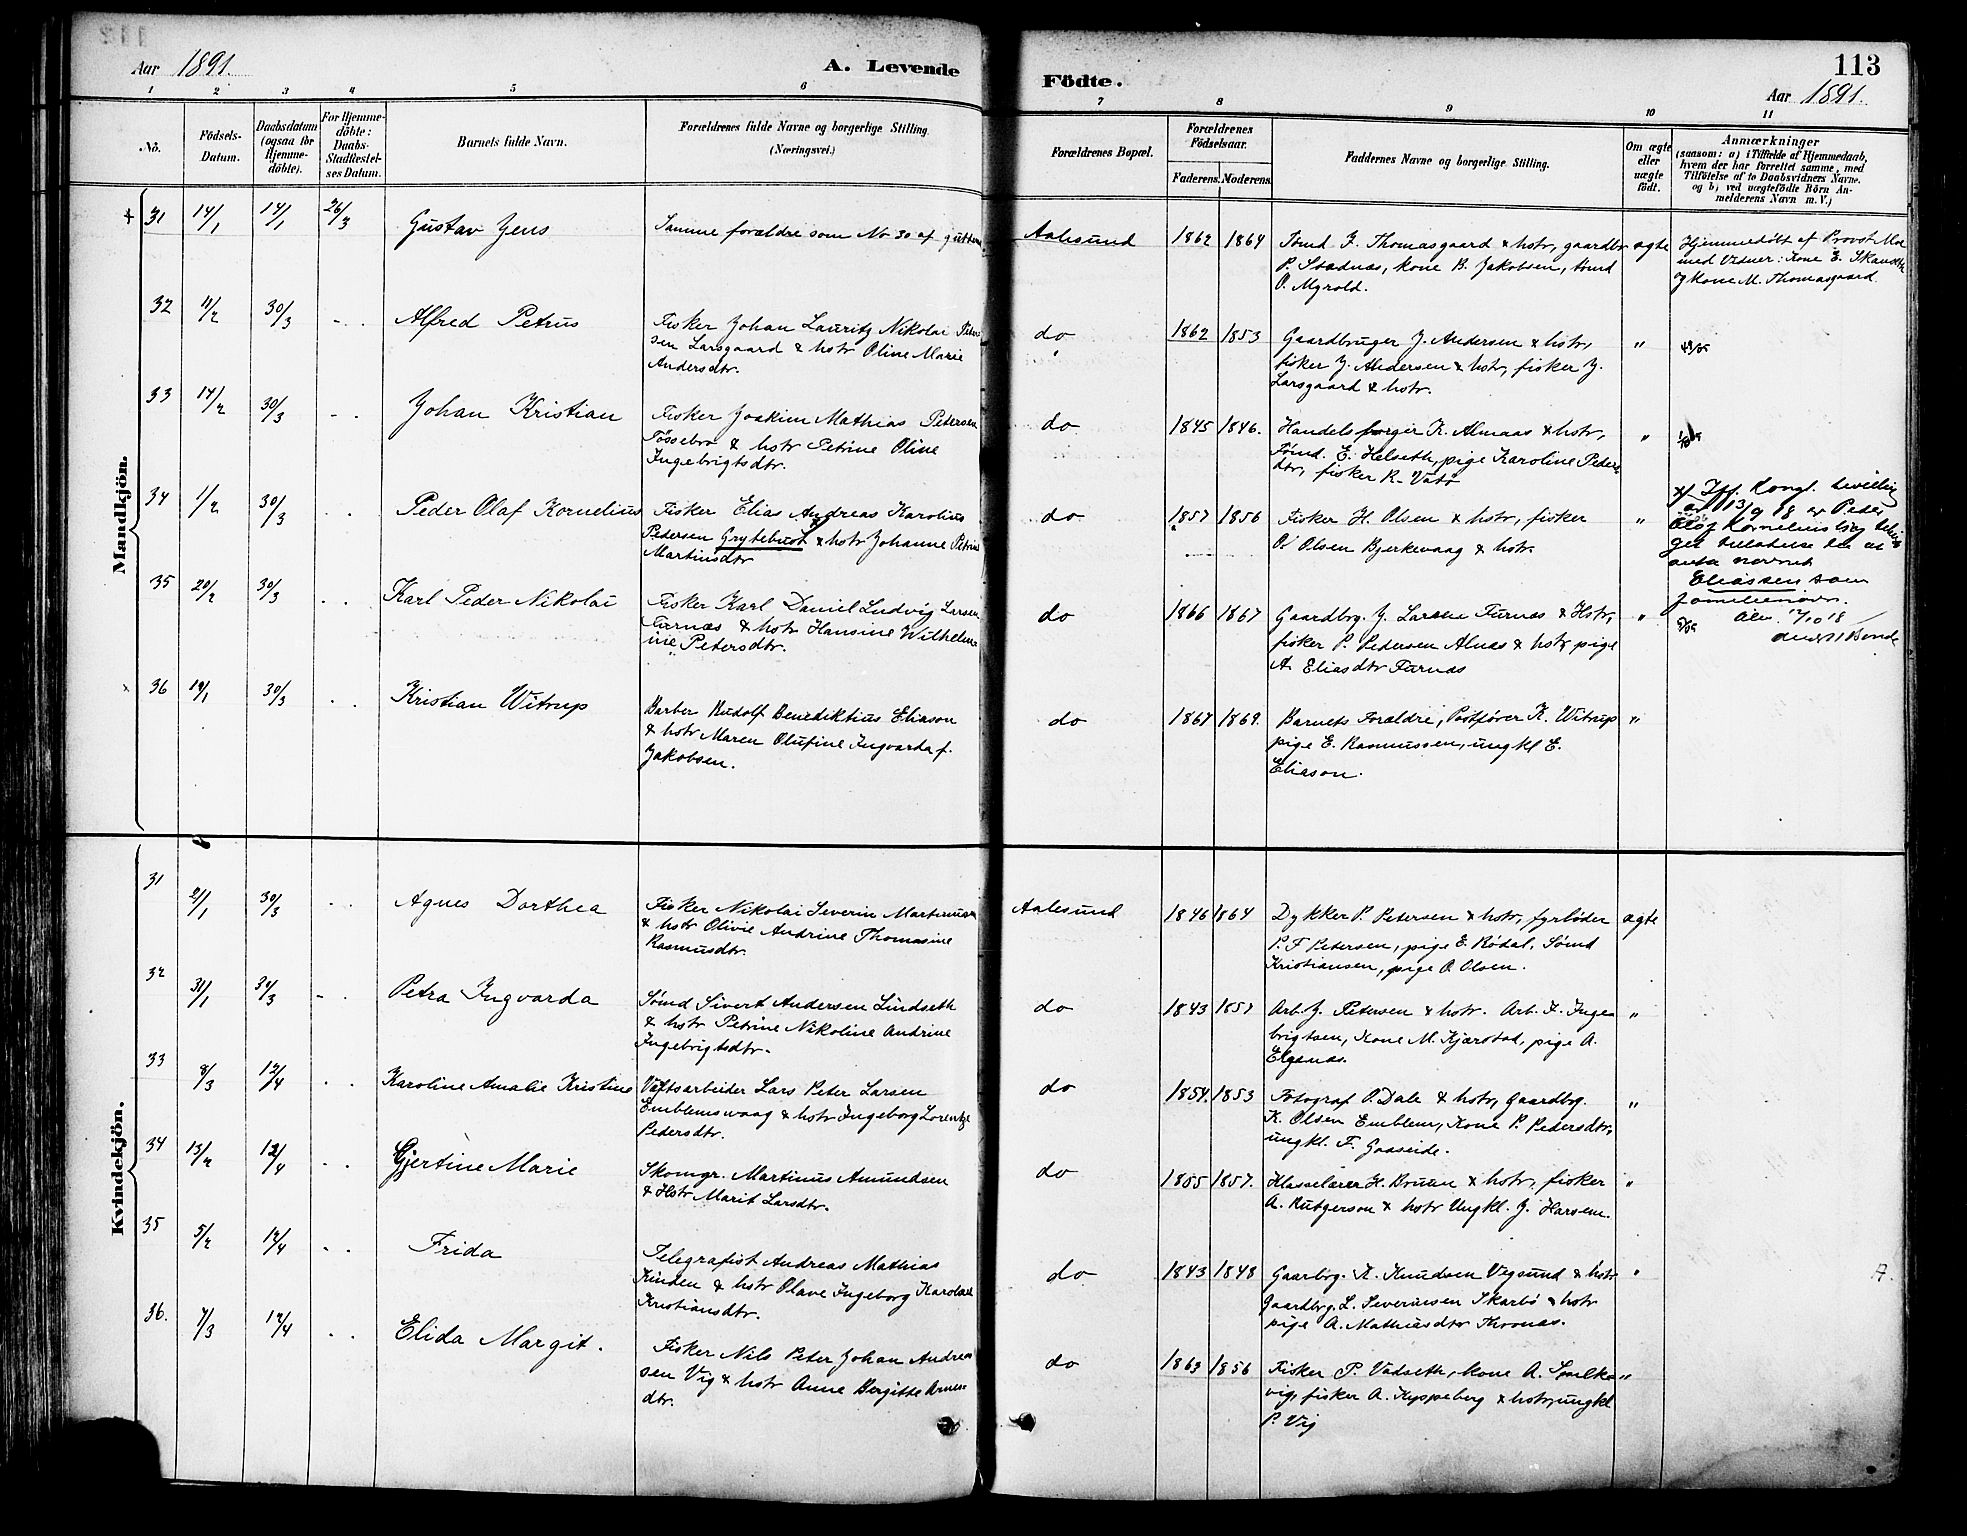 Aar 1891.
A. Levende
Födte.
113
Aar 1891.
1 2 3 4 5 6 7 8 9 10 11
No.
Födsels-Datum.
Daabsdatum (ogsaa for Hjemme-döbte).
For Hjemme-döbte: Daabs-Stadfæstel-ses Datum.
Barnets fulde Navn.
Forældrenes fulde Navne og borgerlige Stilling. (Næringsvei.)
Forældrenes Bopæl.
Forældrenes Födselsaar.
Faderens. Moderens.
Faddernes Navne og borgerlige Stilling.
Om ægte eller uægte födt.
Anmærkninger (saasom: a) i Tilfælde af Hjemmedaab, hvem der har forrettet samme, med Tilföielse af to Daabsvidners Navne. og b) ved uægtefödte Börn An-melderens Navn m. V.)
Mandkjön.
31 14/1 14/1 26/3 Gustav Jens
Samme forældre som No 30 af gutterne
Aalesund 1862 1864
Sömd. J. Thomasgaard & hstr, gaardbr
P. Stadnæs, kone B. Jakobsen, sömd
O. Myrold.
ægte
Hjemmedöbt af Provst Moe
med Vidner: Kone E.
og Kone M. Thomasgaard.
32 11/2 30/3 - Alfred Petrus
Fisker Johan Lauritz Nikolai Peter
sen Larsgaard & hstr Oline Marie
Andersdtr.
do 1862 1853
Gaardbruger J. Andersen & hstr,
fisker J. Andersen & hstr, fisker J.
Larsgaard & hstr.
"
33 14/2 30/3 - Johan Kristian
Fisker Joakim Mathias Petersen
Tössebro & hstr Petrine Oline
Ingebrigtsdtr.
do 1845 1846.
Handelsborger K. Almaas & hstr,
Sömd. E. Helseth, pige Karoline Peders
dtr, fisker R. Vatö
"
34 1/2 30/3 Peder Olaf Kornelius
Fisker Elias Andreas Karolius
Petersen Grytebust & hstr Johanne Petrine
Martinsdtr
do 1857 1856
Fisker H. Olsen & hstr, fisker
O. Olsen Bjerkevaag & hstr.
"
Kongl. bevilling
av 13/9 18 er Peder
Olaf Kornelius
get tilladelse til at
anta navnet
Eliassen som
familienavn.
12/10 18
35 20/2 30/3 Karl Peder Nikolai
Fisker Karl Daniel Ludvig Larsen
Furnæs & hstr Hansine Wilhelm
ine Petersdtr.
do 1866 1867
Gaardbrg. J. Larsen Furnæs & Hstr,
fisker P. Pedersen Alnæs & hstr, pige
A. Eliasdtr Furnæs
"
36 19/1 30/3 Kristian Witrup
Barber Rudolf Benediktius Eliason
& hstr Maren Olufine Ingvarda f.
Jakobsen.
do 1867 1869.
Barnets Forældre, Postförer K. Witrup
pige E. Rasmussen, ungkl E.
Eliason.
"
Kvindekjön.
31 2/1 30/3 Agnes Dorthea
Fisker Nikolai Severin Martinusen
& hstr Olivie Andrine Thomasine
Rasmusdtr.
Aalesund 1846 1864
Dykker P. Petersen & hstr, fyrböder
P. F Petersen, pige E. Rödal, Sömd
Kristiansen, pige O. Olsen.
ægte
32 31/1 30/3 Petra Ingvarda
Sömd Sivert Andersen Lindseth
& hstr Petrine Nikoline Andrine
Ingebrigtsdtr.
do 1843 1857
Arb. J. Petersen & hstr. Arb. I. Inge
brigtsen, Kone M. Kjærstad, pige A.
Elgenæs.
"
33 8/3 12/4 Karoline Amalie Kristine
Væftsarbeider Lars Peter Larsen
Emblemsvaag & hstr Ingeborg Lorentze
Pedersdtr.
do 1854. 1853
Fotograf O. Dale & hstr, Gaardbrg.
K. Olsen Emblem, Kone P. Pedersdtr,
ungkl. F. Gaaseide.
"
34 13/2 12/4 Gjertine Marie
Skomgr. Martinus Amundsen
& Hstr Marit Larsdtr.
do 1855 1857.
Klasselærer H. Bruun & hstr, fisker
A. Rutgerson & hstr Ungkl. J. Harsem.
"
35 5/2 12/4 Frida
Telegrafist Andreas Mathias
Kinden & hstr Olave Ingeborg Karoline
Kristiansdtr.
do 1843 1848
Gaarbrg. K. Knudsen Vegsund & hstr
Gaardbrg. L. Severinsen Skarbö & hstr
pige A. Mathiasdtr Thornæs.
"
36. 7/3 12/4 Elida Margit.
Fisker Nils Peter Johan Andrea
sen Vig & hstr Anne Bergitte Arnes
dtr.
do 1863 1856
Fisker P. Vadseth, kone A. Spilke
vig, fisker A. Kyppeberg & hstr, ungkl
P. Vig
"